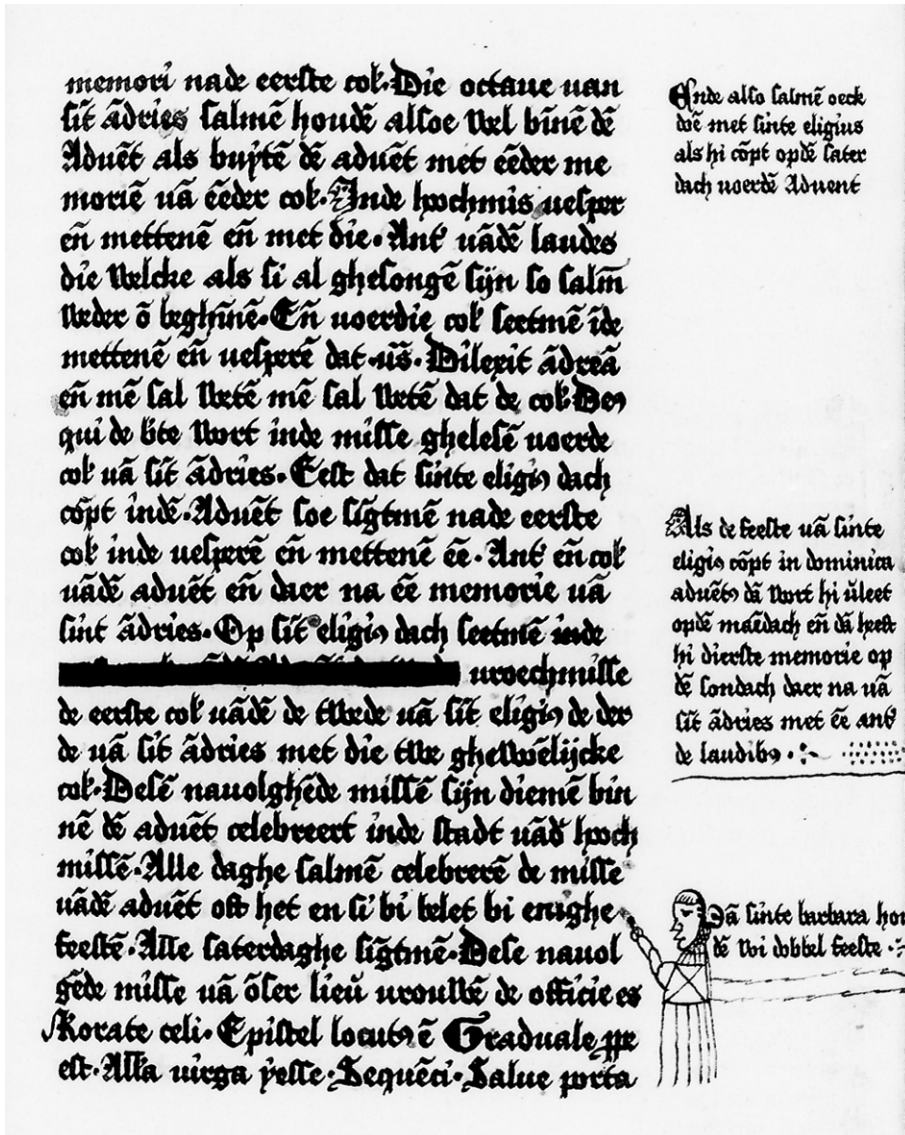 memori nade eerste col᷒·Die octaue uan
sīt ādries salmē houdē alsoe wel bīnē dē
Aduēt als buytē dē aduēt met ēēder me
moriē uā ēēder col᷒·Inde hoochmis uesper
eñ mettenē eñ met die·Ant᷒ uādē laudes
die welcke als si al ghesongē sijn so salm̄
weder ō beghīnē·Eñ uoerdie col᷒ seetmē īde
mettenē eñ uesperē dat·ūs·Dilexit ādreā
eñ mē sal wetē mē sal wetē dat de col᷒·Deꝰ
qui de bte wort inde misse ghelesē uoerde
col᷒ uā sīt ādries·Eest dat sinte eligiꝰ dach
cōpt indē·Aduēt soe sīgtmē nade eerste
col᷒ inde uesperē eñ mettenē ēe·Ant᷒ eñ col᷒
uādē aduēt eñ daer na ēe memorie uā
sint ādries·Op sīt eligiꝰ dach seetmē inde
uroechmisse
de eerste col᷒ uādē de twede uā sīt eligiꝰ de der
de uā sīt ādries met die twe ghewōēlijcke
col᷒·Desē nauolghēde missē sijn diemē bin
nē dē aduēt celebreert inde stadt uādē hooch
missē·Alle daghe salmē celebrerē de misse
uādē aduēt oft het en si bi belet bi enighe
feestē·Alle saterdaghe sīgtmē·Dese nauol
gēde misse uā ōser lieū urouwē de officie es
Rorate celi·Epistel locutꝰ ē Graduale pe
est·Alla uirga yesse·Sequēci·Salue porta
Ende also salmē oeck
doē met sinte eligius
als hi cōpt opdē sater
dach uoerdē Aduent
Als de feeste uā sinte
eligiꝰ cōpt in dominica
aduētꝰ dā wort hi ūleet
opdē maēdach eñ dā heeft
hi dierste memorie op
dē sondach daer na uā
sīt ādries met ēe ant᷒
de laudibꝰ·
Dā sinte barbara hou
dē wi dobbel feeste·